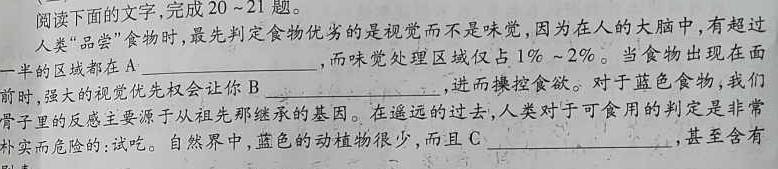 阅读下面的文字,完成20~21题。
人类“品尝”食物时,最先判定食物优劣的是视觉而不是味觉,因为在人的大脑中,有超过
一半的区域都在A____________,而味觉处理区域仅占1%~2%。当食物出现在面
前时,强大的视觉优先权会让你B____________,进而操控食欲。对于蓝色食物,我们
骨子里的反感主要源于从祖先那继承的基因。在遥远的过去,人类对于可食用的判定是非常
朴实而危险的:试吃。自然界中,蓝色的动植物很少,而且C____________,甚至含有